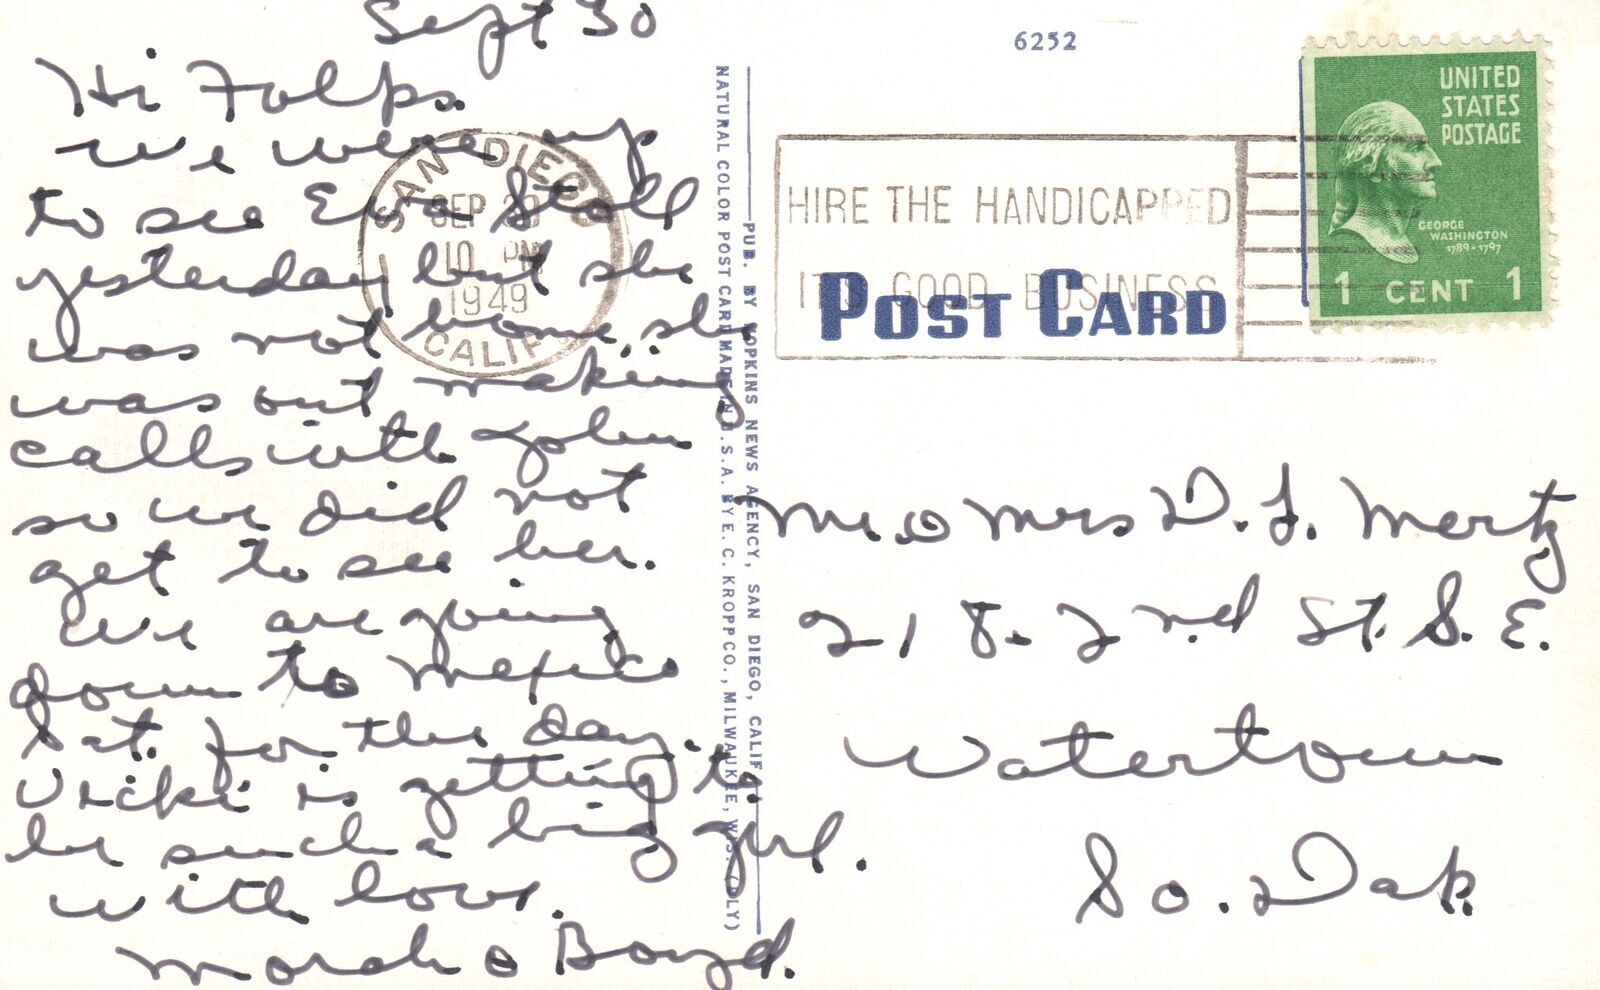 Sept 30
Hi Folks.
We were up
to see Eva Stoll
yesterday but she
was not home, she
was out making
calls with John
so we did not
get to see her.
We are going
down to Mexico
Sat. for the day.
Vicki is getting to
be such a big girl.
With love.
& Boyd.
SAN DIEGO
SEP
10 PM
1949
CALIF.
NATURAL COLOR POST CARD MADE IN U.S.A. BY E. C. KROPP CO., MILWAUKEE, WIS. (PLY)
PUB. BY HOPKINS NEWS AGENCY, SAN DIEGO, CALIF.
6252
HIRE THE HANDICAPPED
IT'S GOOD BUSINESS
POST CARD
UNITED
STATES
POSTAGE
GEORGE
WASHINGTON
1789-1797
1 CENT 1
Mr. & Mrs D. F. Mertz
218-2nd St. S. E.
Watertown
So. Dak.